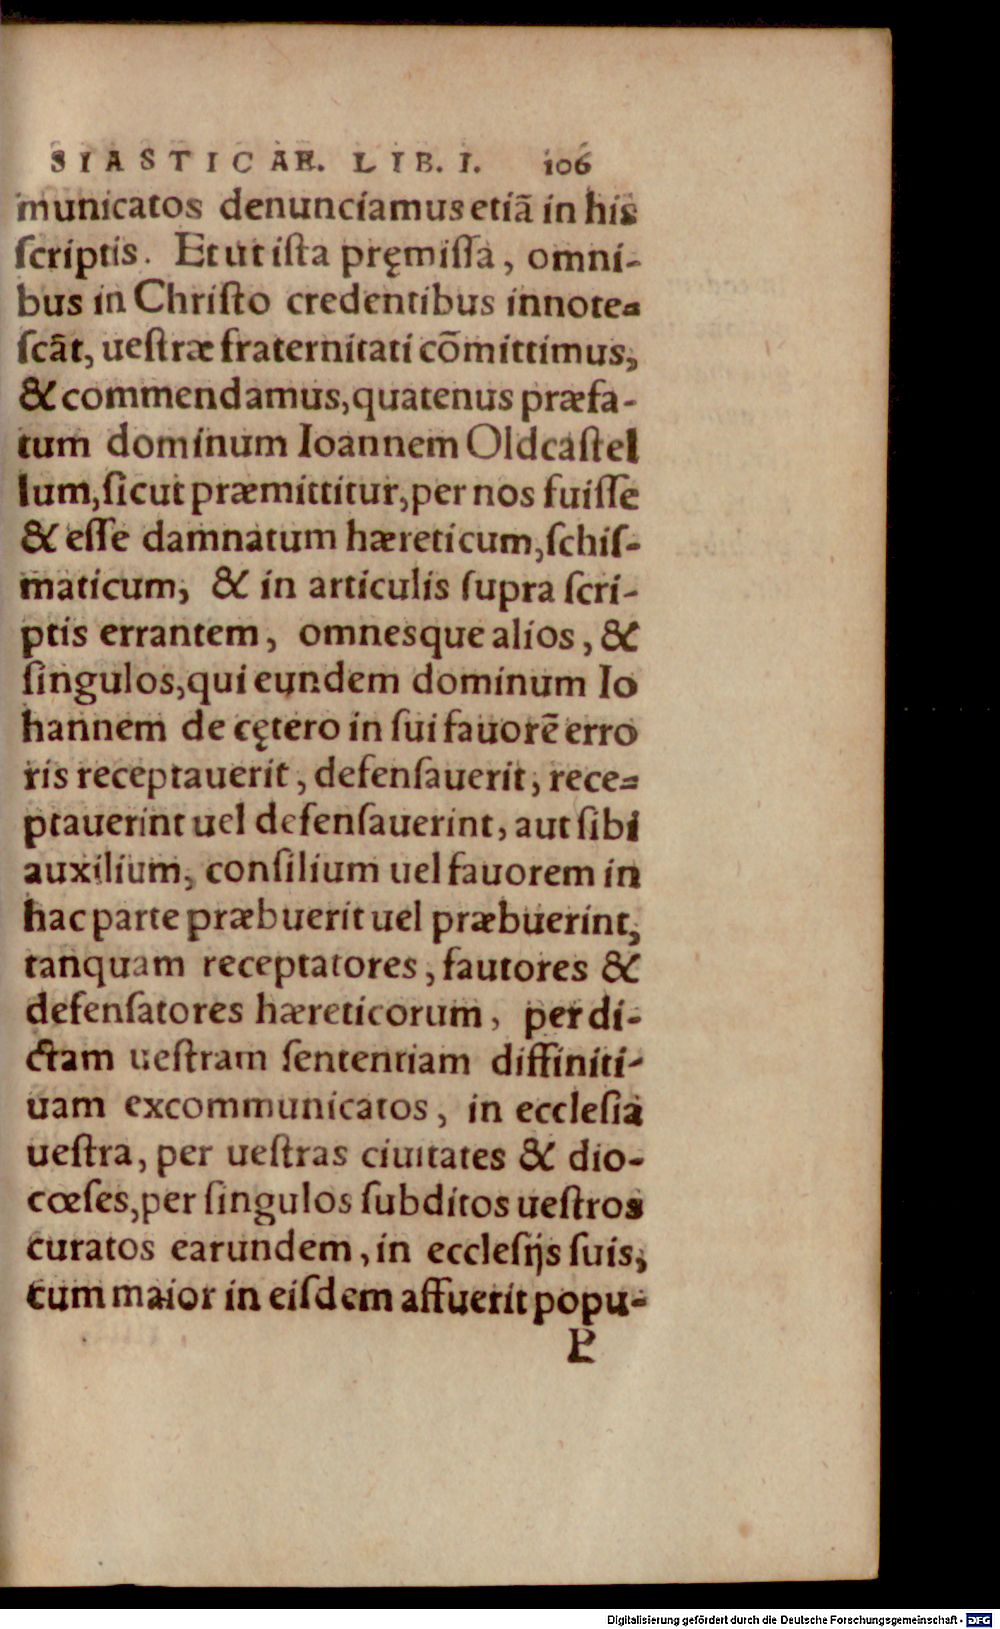 SIASTICAE. LIB. I. 106
municatos denunciamus etiā in his
ſcriptis. Et ut iſta pręmiſſa, omni-
bus in Chriſto credentibus innote-
ſcāt, ueſtræ fraternitati cōmittimus,
& commendamus, quatenus præfa-
tum dominum Ioannem Oldcaſtel
lum, ſicut præmittitur, per nos fuiſſe
& eſſe damnatum hæreticum, ſchiſ-
maticum, & in articulis ſupra ſcri-
ptis errantem, omnesque alios, &
ſingulos, qui eundem dominum Io
hannem de cętero in ſui fauorē erro
ris receptauerit, defenſauerit, rece-
ptauerint uel defenſauerint, aut ſibi
auxilium, conſilium uel fauorem in
hac parte præbuerit uel præbuerint,
tanquam receptatores, fautores &
defenſatores hæreticorum, per di-
ctam ueſtram ſententiam diffiniti-
uam excommunicatos, in eccleſia
ueſtra, per ueſtras ciuitates & dio-
cœſes, per ſingulos ſubditos ueſtros
curatos earundem, in eccleſijs ſuis,
cum maior in eiſdem affuerit popu-
P
Digitalisierung gefördert durch die Deutsche Forschungsgemeinschaft - DFG